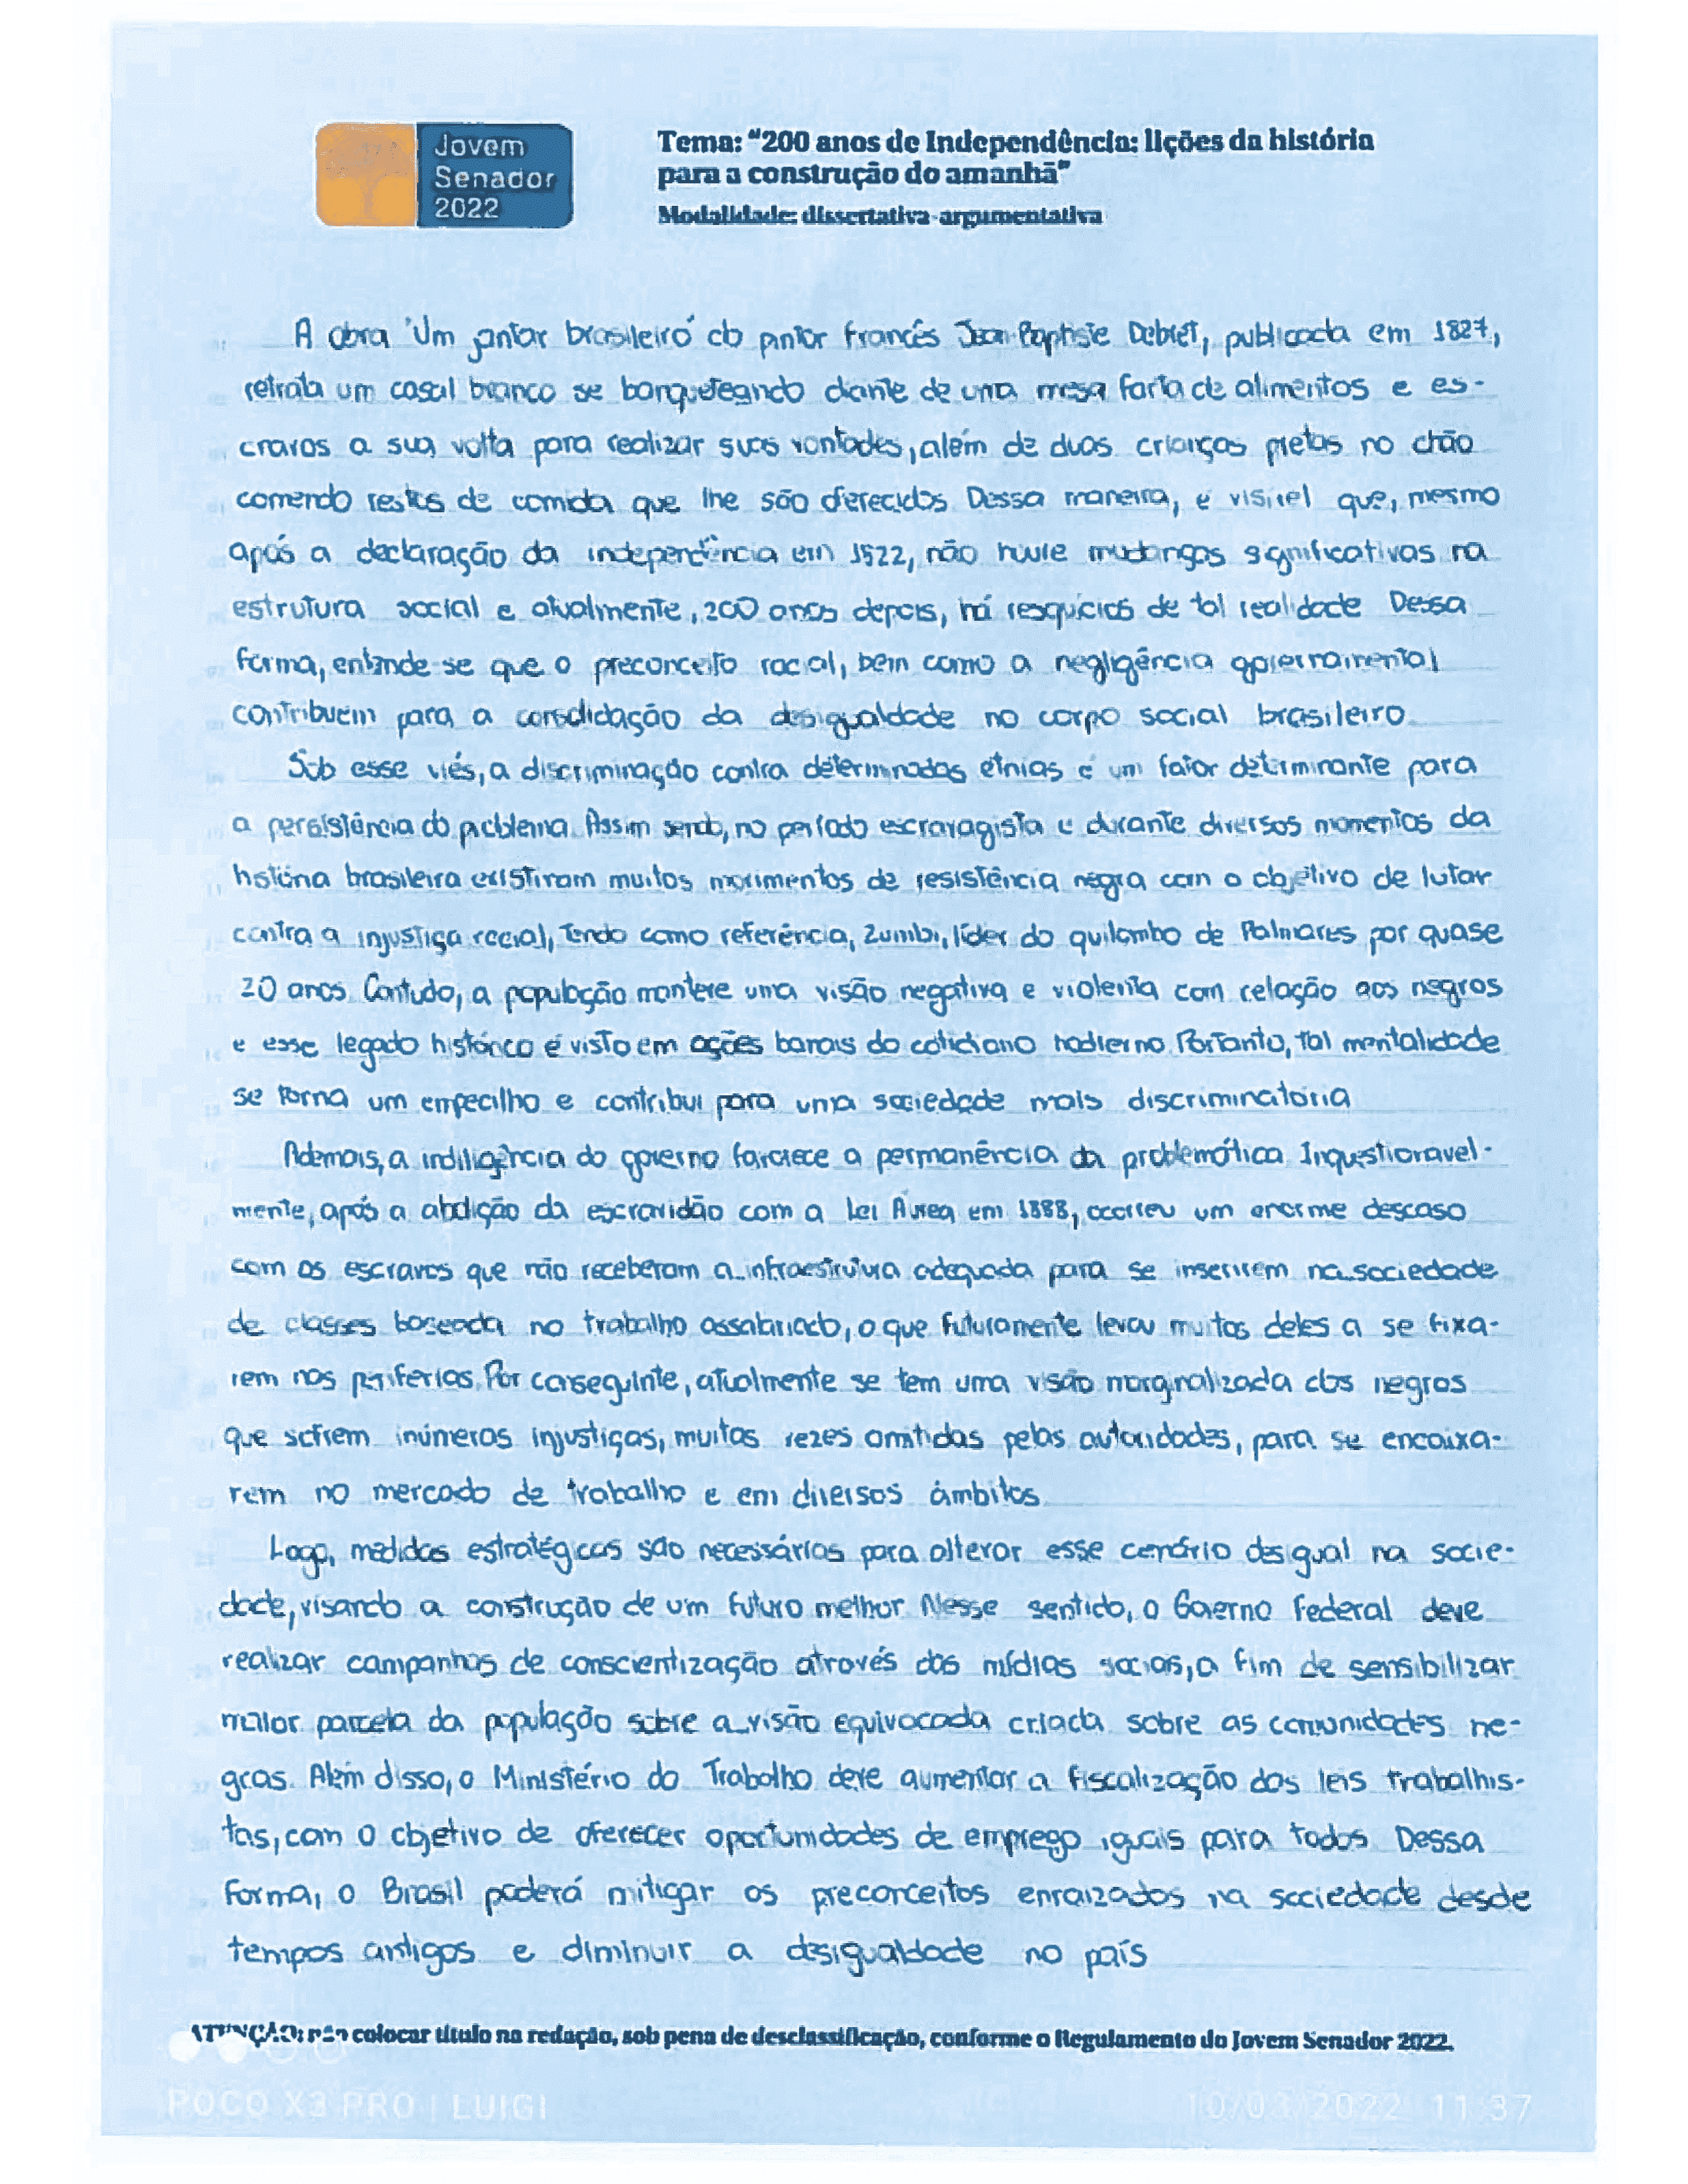 Jovem
Senador
2022
Tema: "200 anos de Independência: lições da história
para a construção do amanhã"
Modalidade: dissertativa-argumentativa
A obra 'Um jantar brasileiro' do pintor francês Jean-Baptiste Debret, publicada em 1827,
retrata um casal branco se banqueteando diante de uma mesa farta de alimentos e es-
cravos a sua volta para realizar suas vontades, além de duas crianças pretas no chão
comendo restos de comida que lhe são oferecidos. Dessa maneira, é visível que, mesmo
após a declaração da independência em 1822, não houve mudanças significativas na
estrutura social e atualmente, 200 anos depois, há resquícios de tal realidade. Dessa
forma, entende-se que o preconceito racial, bem como a negligência governamental
contribuem para a consolidação da desigualdade no corpo social brasileiro.
Sob esse viés, a discriminação contra determinadas etnias é um fator determinante para
a persistência do problema. Assim sendo, no período escravagista e durante diversos momentos da
história brasileira existiram muitos movimentos de resistência negra com o objetivo de lutar
contra a injustiça racial, tendo como referência, Zumbi, líder do quilombo de Palmares por quase
20 anos. Contudo, a população manteve uma visão negativa e violenta com relação aos negros
e esse legado histórico é visto em ações banais do cotidiano hodierno. Portanto, tal mentalidade
se torna um empecilho e contribui para uma sociedade mais discriminatória.
Ademais, a indiligência do governo favorece a permanência da problemática. Inquestionavel-
mente, após a abolição da escravidão com a Lei Áurea em 1888, ocorreu um enorme descaso
com os escravos que não receberam a infraestrutura adequada para se inserirem na sociedade
de classes baseada no trabalho assalariado, o que futuramente levou muitos deles a se fixa-
rem nas periferias. Por conseguinte, atualmente se tem uma visão marginalizada dos negros
que sofrem inúmeras injustiças, muitas vezes omitidas pelas autoridades, para se encaixa-
rem no mercado de trabalho e em diversos âmbitos.
Logo, medidas estratégicas são necessárias para alterar esse cenário desigual na socie-
dade, visando a construção de um futuro melhor. Nesse sentido, o Governo Federal deve
realizar campanhas de conscientização através das mídias sociais, a fim de sensibilizar
maior parcela da população sobre a visão equivocada criada sobre as comunidades ne-
gras. Além disso, o Ministério do Trabalho deve aumentar a fiscalização das leis trabalhis-
tas, com o objetivo de oferecer oportunidades de emprego iguais para todos. Dessa
forma, o Brasil poderá mitigar os preconceitos enraizados na sociedade desde
tempos antigos e diminuir a desigualdade no país
ATENÇÃO: não colocar título na redação, sob pena de desclassificação, conforme o Regulamento do Jovem Senador 2022.
POCO X3 PRO | LUIGI
10/03/2022 11:37